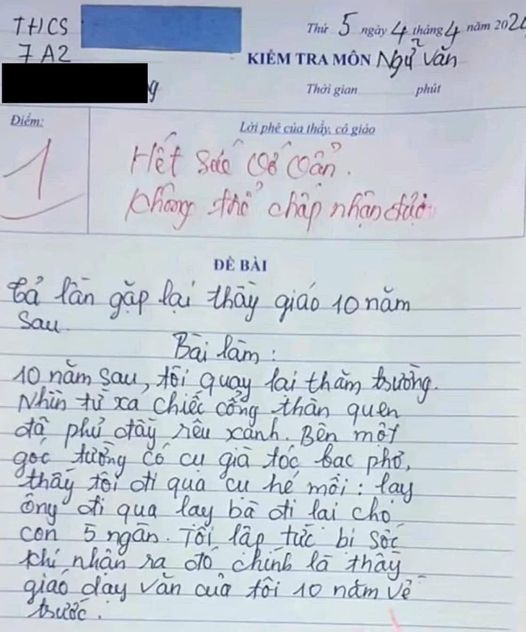 THCS
7 A2
Thứ 5 ngày 4 tháng 4 năm 202
KIỂM TRA MÔN Ngữ Văn
Thời gian phút
Điểm:
1
Lời phê của thầy, cô giáo
Hết sức
Không thể chấp nhận được
ĐỀ BÀI
Tả lần gặp lại thầy giáo 10 năm
sau.
Bài làm:
10 năm sau, tôi quay lại thăm trường.
Nhìn từ xa chiếc cổng thân quen
đã phủ đầy rêu xanh. Bên một
góc tường có cụ già tóc bạc phơ,
thấy tôi đi qua cụ hé môi: lạy
ông đi qua lạy bà đi lại cho
con 5 ngàn. Tôi lập tức bị sốc
khi nhận ra đó chính là thầy
giáo dạy văn của tôi 10 năm về
trước.